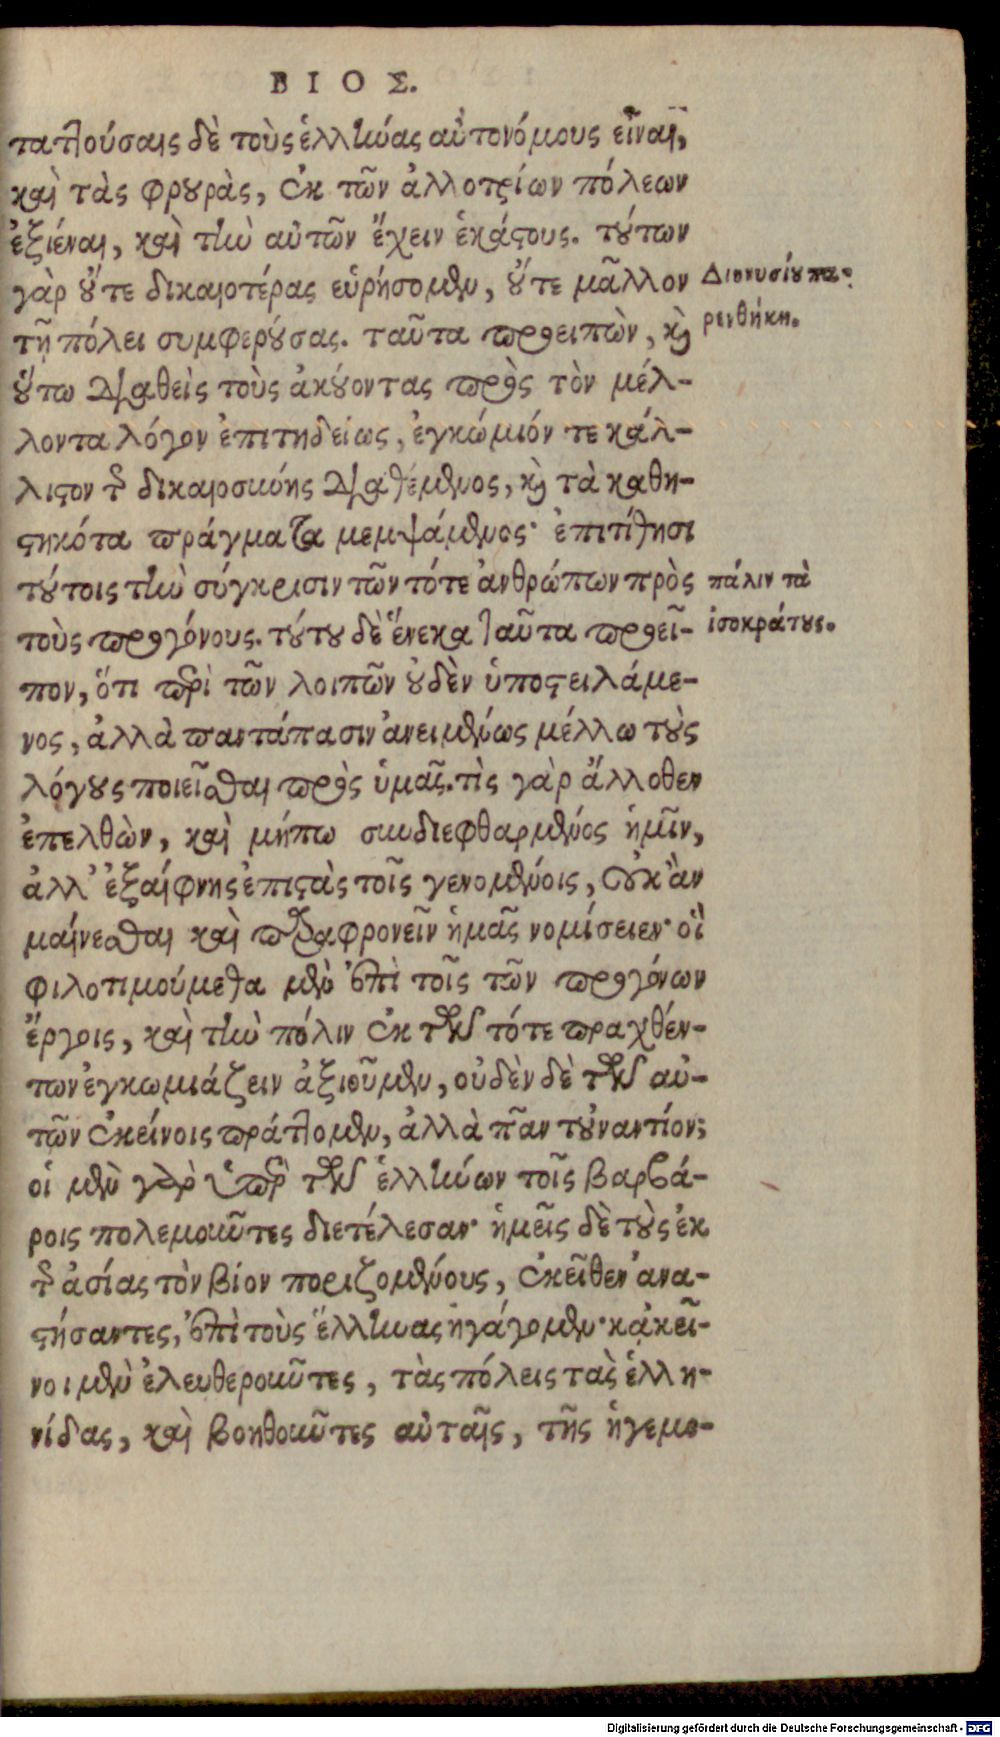 ΒΙΟΣ.
ταττούσαις δὲ τοὺς ἑλλήνας αὐτονόμους εἶναι,
καὶ τὰς φρουρὰς, ἐκ τῶν ἀλλοτρίων πόλεων
ἐξιέναι, καὶ τὴν αὑτῶν ἔχειν ἑκάστους. τούτων
γὰρ οὔτε δικαιοτέρας εὑρήσομεν, οὔτε μᾶλλον
Διονυσίου πα-
τῇ πόλει συμφερούσας. ταῦτα προειπὼν, καὶ
ρενθήκη.
οὕτω διαθεὶς τοὺς ἀκούοντας πρὸς τὸν μέλ-
λοντα λόγον ἐπιτηδείως, ἐγκώμιόν τε κάλ-
λιστον τῆς δικαιοσύνης διαθέμενος, καὶ τὰ καθη-
στηκότα πράγματα μεμψάμενος· ἐπιτίθησι
τούτοις τὴν σύγκρισιν τῶν τότε ἀνθρώπων πρὸς
πάλιν τὰ
τοὺς προγόνους. τούτου δὲ ἕνεκα ταῦτα προεῖ-
ἰσοκράτους.
πον, ὅτι περὶ τῶν λοιπῶν οὐδὲν ὑποστειλάμε-
νος, ἀλλὰ παντάπασιν ἀνειμένως μέλλω τοὺς
λόγους ποιεῖσθαι πρὸς ὑμᾶς. τὶς γὰρ ἄλλοθεν
ἐπελθὼν, καὶ μήπω συνδιεφθαρμένος ἡμῖν,
ἀλλ' ἐξαίφνης ἐπιστὰς τοῖς γενομένοις, οὐκ ἂν
μαίνεσθαι καὶ παραφρονεῖν ἡμᾶς νομίσειεν· οἳ
φιλοτιμούμεθα μὲν ἐπὶ τοῖς τῶν προγόνων
ἔργοις, καὶ τὴν πόλιν ἐκ τῶν τότε πραχθέν-
των ἐγκωμιάζειν ἀξιοῦμεν, οὐδὲν δὲ τῶν αὐ-
τῶν ἐκείνοις πράττομεν, ἀλλὰ πᾶν τοὐναντίον;
οἱ μὲν γὰρ ὑπὲρ τῶν ἑλλήνων τοῖς βαρβά-
ροις πολεμοῦντες διετέλεσαν· ἡμεῖς δὲ τοὺς ἐκ
τῆς ἀσίας τὸν βίον ποριζομένους, ἐκεῖθεν ἀνα-
στήσαντες, ἐπὶ τοὺς ἕλληνας ἠγάγομεν· κᾀκεῖ-
νοι μὲν ἐλευθεροῦντες, τὰς πόλεις τὰς ἑλλη-
νίδας, καὶ βοηθοῦντες αὐταῖς, τῆς ἡγεμο-
Digitalisierung gefördert durch die Deutsche Forschungsgemeinschaft - DFG